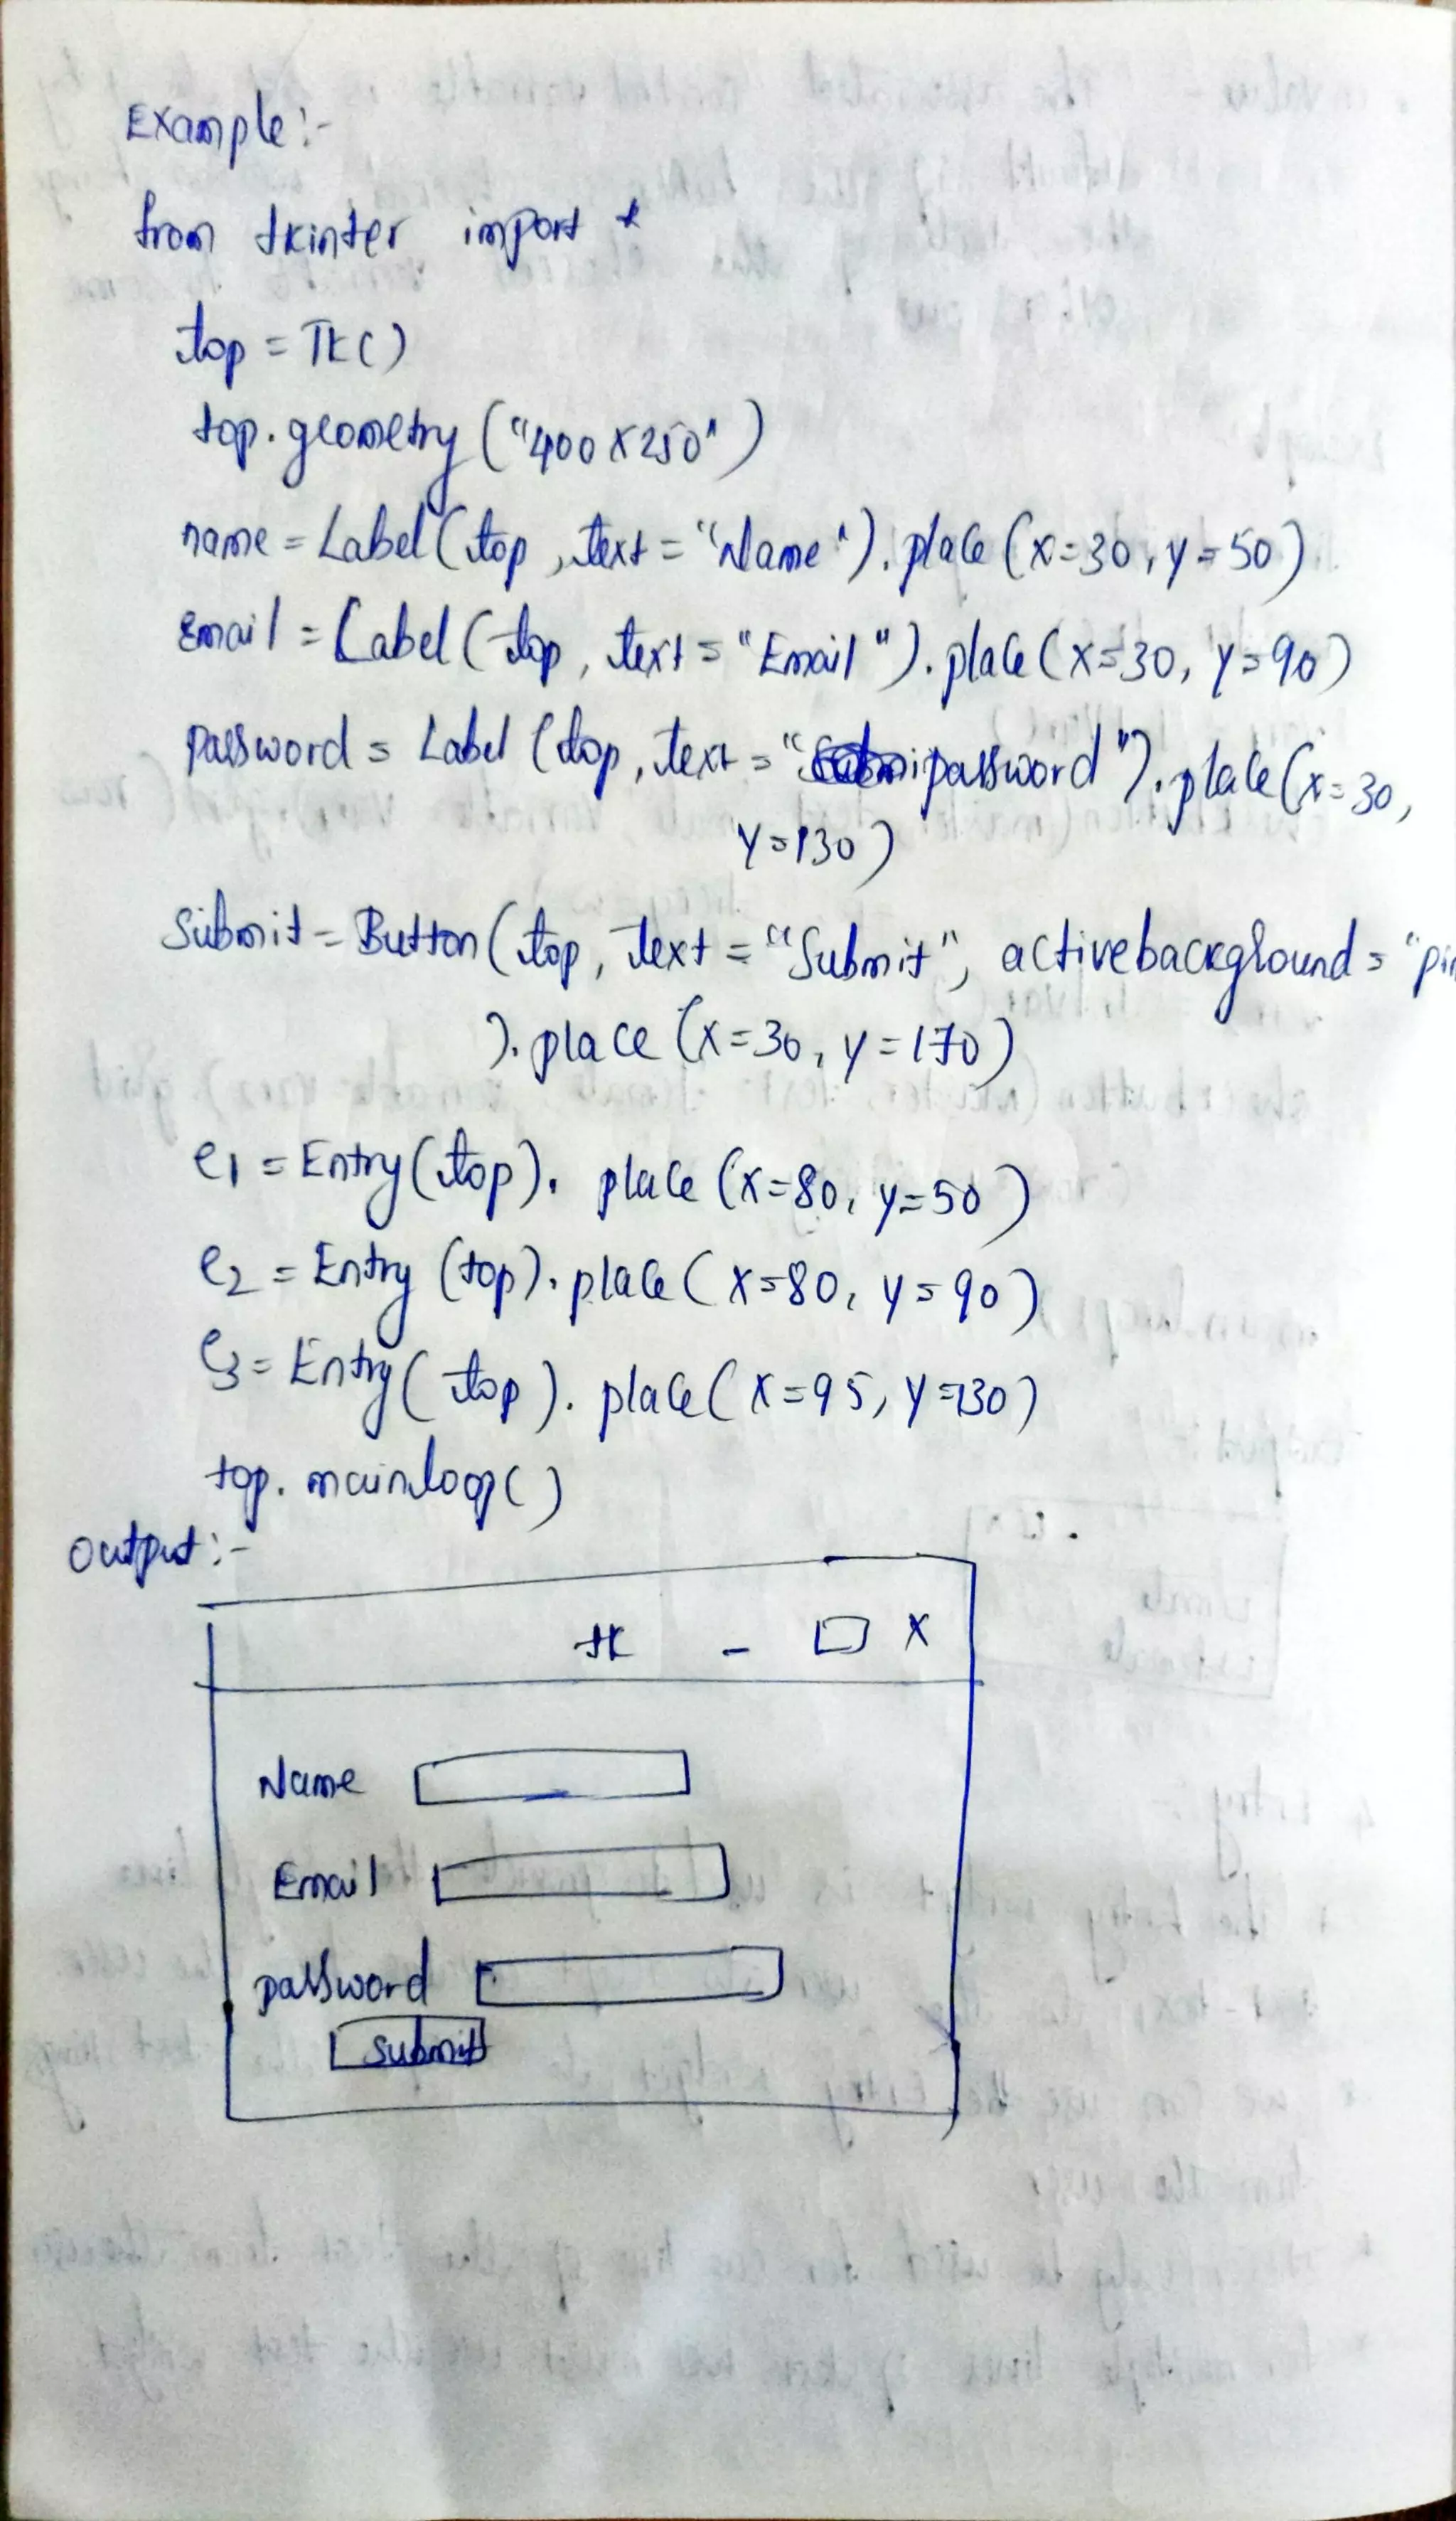 Example:-
from tkinter import *
top = TK()
top.geometry("400x250")
name = Label(top, text = "Name").place(x=30, y=50)
Email = Label(top, text = "Email").place(x=30, y=90)
password = Label(top, text = "password").place(x=30,
y=130)
Submit = Button(top, text = "Submit", activebackground = "pin
).place(x=30, y=170)
e1 = Entry(top).place(x=80, y=50)
e2 = Entry(top).place(x=80, y=90)
e3 = Entry(top).place(x=95, y=130)
top.mainloop()
output:-
tk - X
Name
Email
password
submit